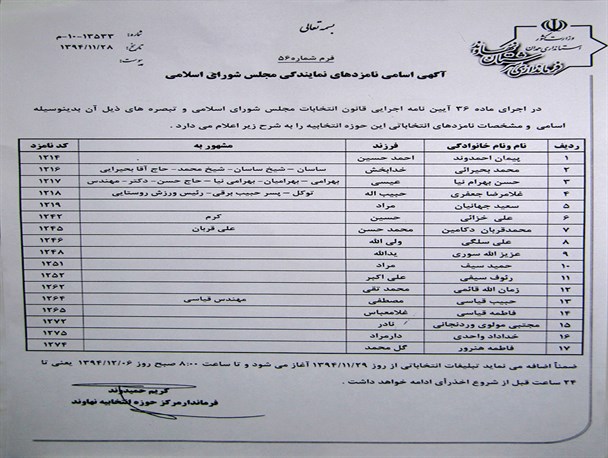 بسمه تعالی
شماره: ۱۳۵۳۳-۱۰-م
تاریخ: ۱۳۹۴/۱۱/۲۸
پیوست:
وزارت کشور
استانداری همدان
فرم شماره ۵۶
آگهی اسامی نامزدهای نمایندگی مجلس شورای اسلامی
در اجرای ماده ۳۶ آیین نامه اجرایی قانون انتخابات مجلس شورای اسلامی و تبصره های ذیل آن بدینوسیله
اسامی و مشخصات نامزدهای انتخاباتی این حوزه انتخابیه را به شرح زیر اعلام می دارد .
ردیف نام ونام خانوادگی فرزند مشهور به کد نامزد
۱ پیمان احمدوند احمد حسین ۱۲۱۴
۲ محمد بحیرائی خدابخش ساسان – شیخ ساسان- شیخ محمد- حاج آقا بحیرایی ۱۲۱۶
۳ حسن بهرام نیا عیسی بهرامی – بهرامیان- بهرامی نیا – حاج حسن- دکتر- مهندس ۱۲۱۷
۴ غلامرضا جعفری حبیب اله توکل – پسر حبیب برقی- رئیس ورزش روستایی ۱۲۱۸
۵ سعید جهانیان مراد ۱۲۱۹
۶ علی خزائی حسین کرم ۱۲۴۲
۷ محمدقربان دکامین محمد حسن علی قربان ۱۲۴۵
۸ علی سلگی ولی الله ۱۲۴۶
۹ عزیز الله سوری یدالله ۱۲۴۸
۱۰ حمید سیف مراد ۱۲۵۱
۱۱ رئوف سیفی علی اکبر ۱۲۵۲
۱۲ زمان الله قائمی محمد تقی ۱۲۶۲
۱۳ حبیب قیاسی مصطفی مهندس قیاسی ۱۲۶۴
۱۴ فاطمه قیاسی غلامعباس ۱۲۶۵
۱۵ مجتبی مولوی وردنجانی نادر ۱۲۷۲
۱۶ خداداد واحدی دارمراد ۱۲۷۵
۱۷ فاطمه هنرور گل محمد ۱۲۷۴
ضمناً اضافه می نماید تبلیغات انتخاباتی از روز ۱۳۹۴/۱۱/۲۹ آغاز می شود و تا ساعت ۸:۰۰ صبح روز ۱۳۹۴/۱۲/۰۶ یعنی تا
۲۴ ساعت قبل از شروع اخذرأی ادامه خواهد داشت .
کریم حمیدوند
فرماندارمرکز حوزه انتخابیه نهاوند